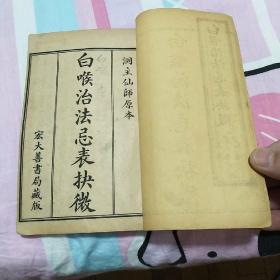 洞主仙師原本
白喉治法忌表抉微
宏大善書局藏版